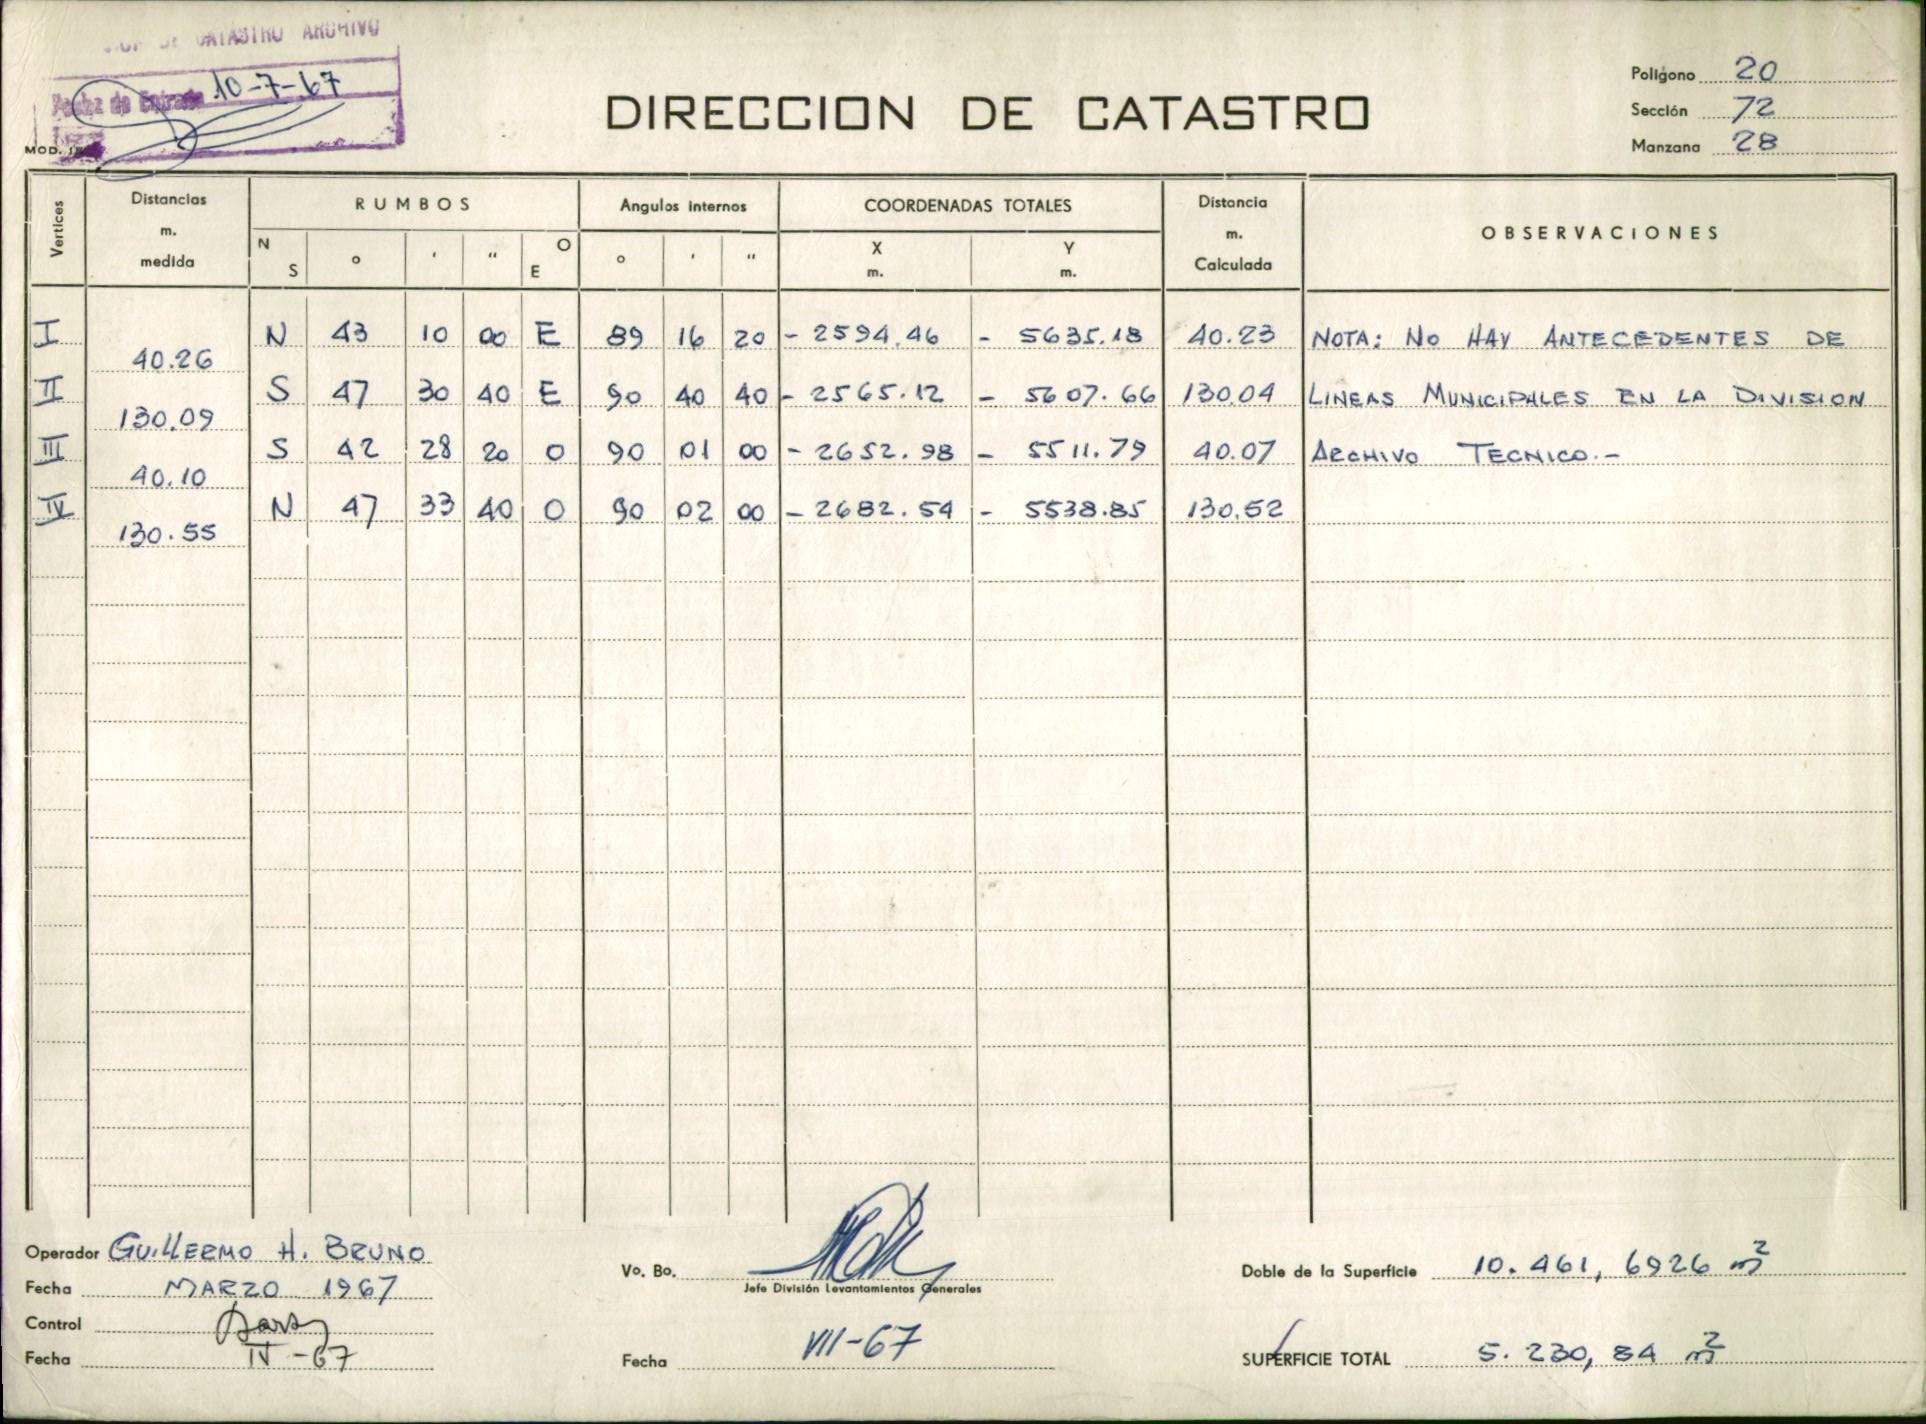 CATASTRO ARCHIVO
Fecha de Entrada 10-7-67
MOD.
DIRECCION DE CATASTRO
Polígono 20
Sección 72
Manzana 28
Vertices Distancias m. medida RUMBOS Angulos internos COORDENADAS TOTALES Distancia m. Calculada OBSERVACIONES
N S ° ' " O E ° ' " X m. Y m.
I N 43 10 00 E 89 16 20 - 2594.46 - 5635.18 40.23 NOTA: NO HAY ANTECEDENTES DE
40.26
II S 47 30 40 E 90 40 40 - 2565.12 - 5607.66 130.04 LINEAS MUNICIPALES EN LA DIVISION
130.09
III S 42 28 20 O 90 01 00 - 2652.98 - 5511.79 40.07 ARCHIVO TECNICO.-
40.10
IV N 47 33 40 O 90 02 00 - 2682.54 - 5538.85 130.52
130.55
Operador GUILLERMO H. BRUNO
Fecha MARZO 1967
Control
Fecha IV-67
Vo. Bo.
Jefe División Levantamientos Generales
Fecha VII-67
Doble de la Superficie 10.461,6926 m²
SUPERFICIE TOTAL 5.230,84 m²